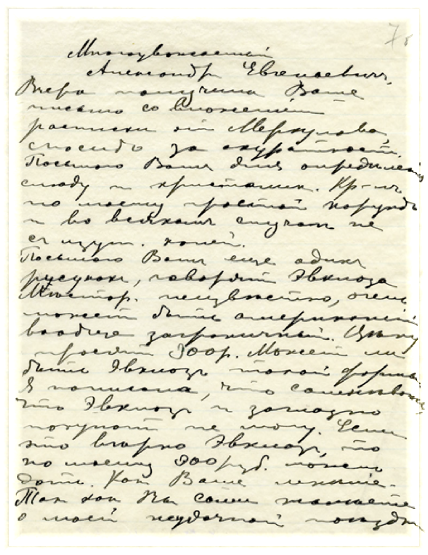 7б
Многоуважаемый
Александр Евгениевич,
Вчера получила Ваше
письмо со вложением
расписки от Меркулова
спасибо за
Посылаю Вам для определения
слюду и кристалик. Кр-лъ
по моему простой корундъ
и во всякомъ случае не
съ изум. копей.
Посылаю Вам еще один
рисунок, говорят Эвклаза
Месттор. неизвестно, очень
может быть американский
вообще заграничный. Цену
просят 300 р. Может ли
быть Эвклазъ такой формы.
Я написала, что сомневаюсь
что Эвклазъ и заглазно
покупать не могу. Если
это верно Эвклаз, то
по моему 300 руб. можно
дать. Как Ваше мнение.
Так как Вы сами
о моей неудачной поездк